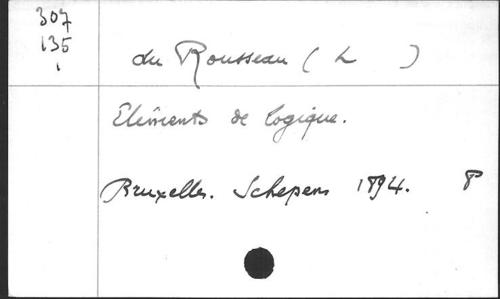 307
135
1
du Rousseau (L )
Eléments de logique.
Bruxelles. Schepens 1894. 8°